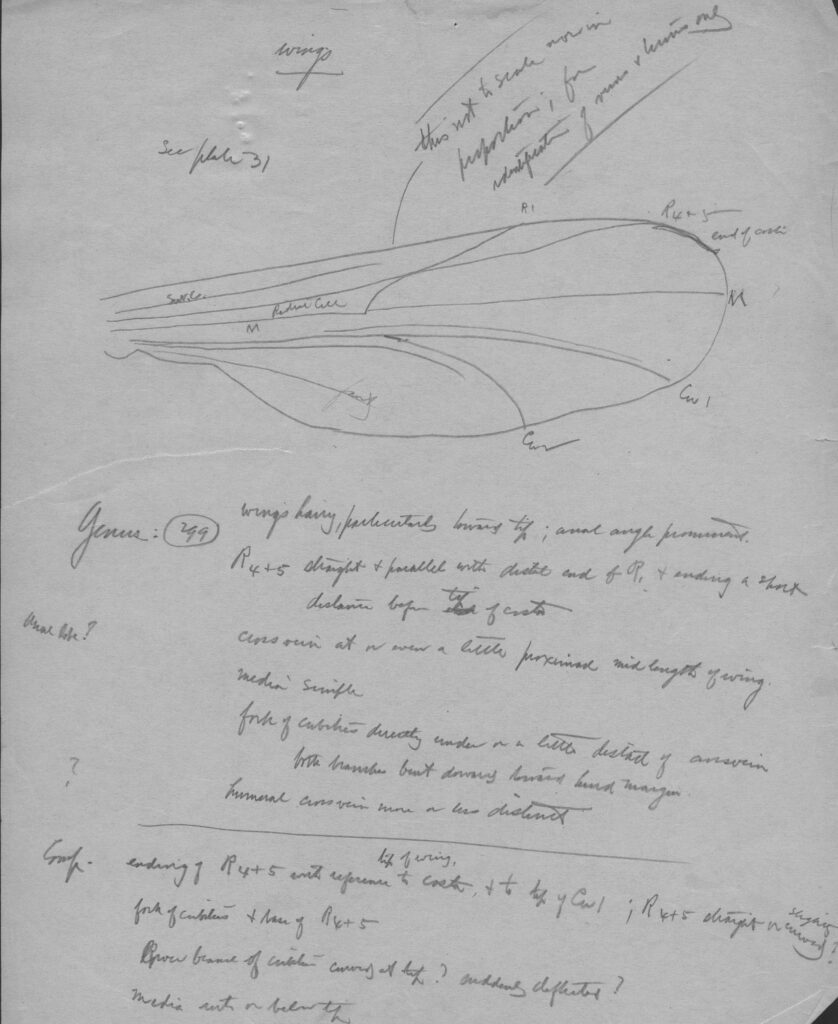 wings
this not to scale now in
proportion; for
identification of veins & terms only
See plate 31
R1
R4+5
end of costa
Sub Co.
Radial Cell
M
M
Cu 1
Cu
Genus: 299
wings hairy, particularly toward tip; anal angle prominent.
R4+5 straight & parallel with distal end of R1 & ending a short
distance before tip of costa
Anal lobe?
crossvein at or even a little proximad mid length of wing.
media simple
fork of cubitus directly under or a little distad of crossvein
both branches bent downward toward hind margin.
?
humeral crossvein more or less distinct
Comp.
tip of wing,
ending of R4+5 with reference to costa, & to tip of Cu 1 ; R4+5 straight or curved?
fork of cubitus & base of R4+5
branch of cubitus curved at tip? suddenly deflected?
media ends or below tip